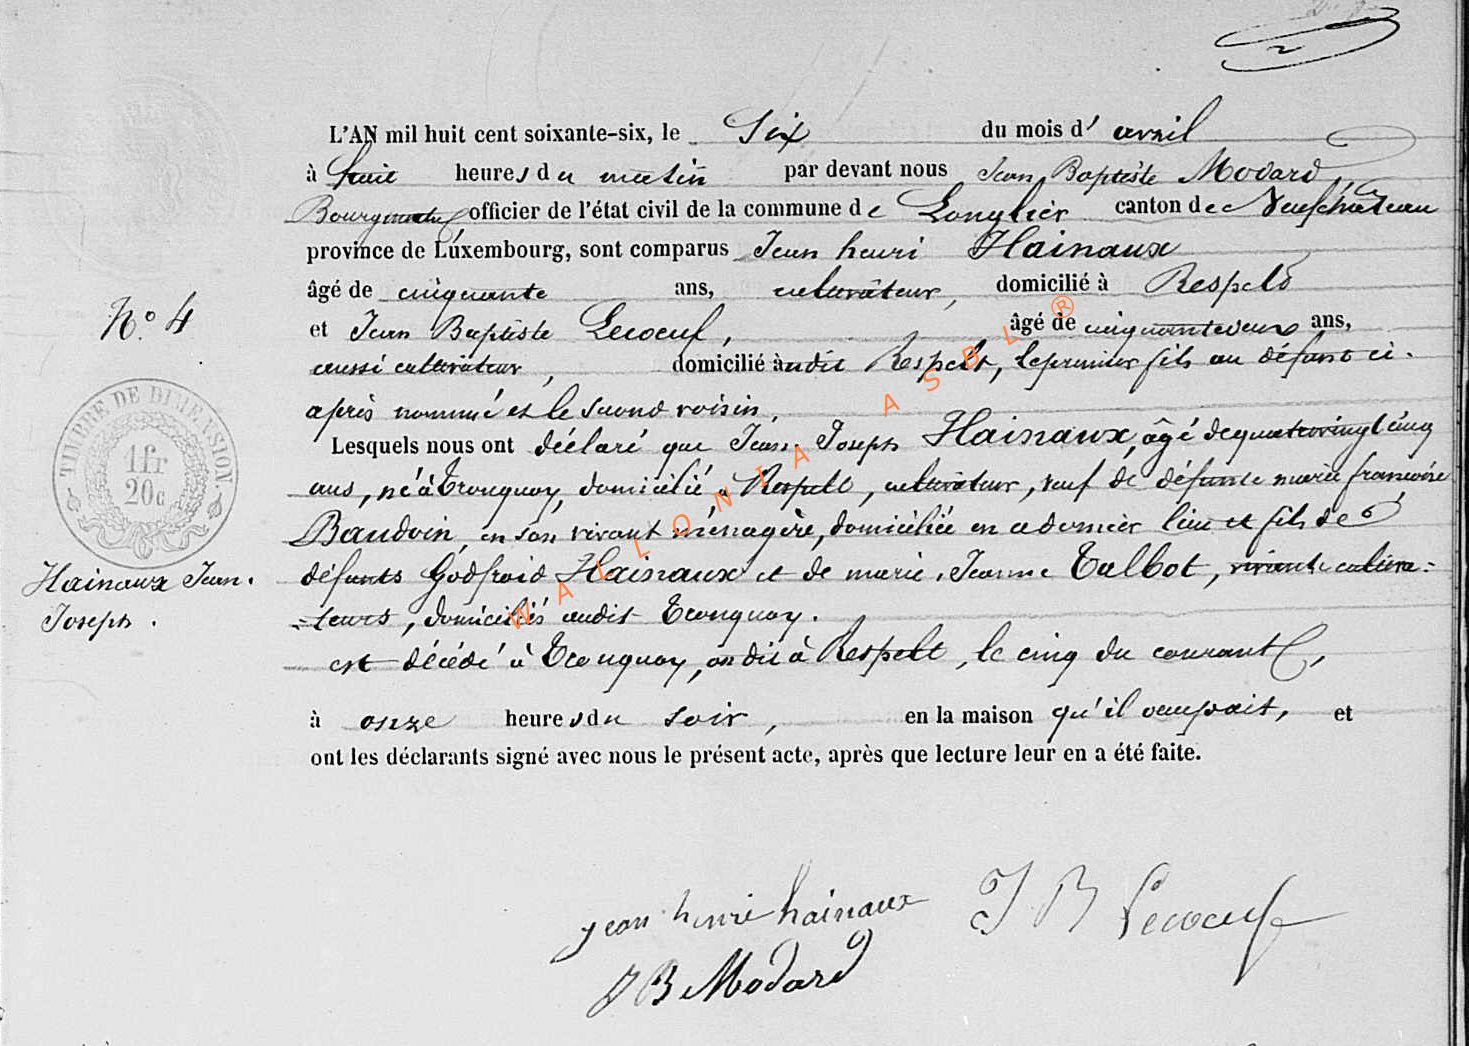 L'AN mil huit cent soixante-six, le Six du mois d' avril
à huit heures du matin par devant nous Jean Baptiste Modard,
Bourgmestre officier de l'état civil de la commune de Longlier canton de Neufchâteau
province de Luxembourg, sont comparus Jean henri Hainaux
âgé de cinquante ans, cultivateur, domicilié à Respelt
et Jean Baptiste Lecoeuf, âgé de cinquante deux ans,
aussi cultivateur, domicilié audit Respelt, le premier fils au défunt ci-
après nommé et le second voisin.
Lesquels nous ont déclaré que Jean Joseph Hainaux, âgé de quatrevingt cinq
ans, né à Tronquoy, domicilié à Respelt, cultivateur, veuf de défunte marie françoise
Baudoin, en son vivant ménagère, domiciliée en ce dernier lieu et fils de
défunts Godfroid Hainaux et de marie Jeanne Talbot, vivants cultiva=
=teurs, domiciliés audit Tronquoy.
est décédé à Tronquoy, on dit à Respelt, le cinq du courant,
à onze heures du soir, en la maison qu'il occupait, et
ont les déclarants signé avec nous le présent acte, après que lecture leur en a été faite.
N.o 4
TIMBRE DE DIMENSION
1 fr
20c
Hainaux Jean.
Joseph.
jean henri hainaux
J B Lecoeuf
J B Modard
WALLONIA ASBL ®